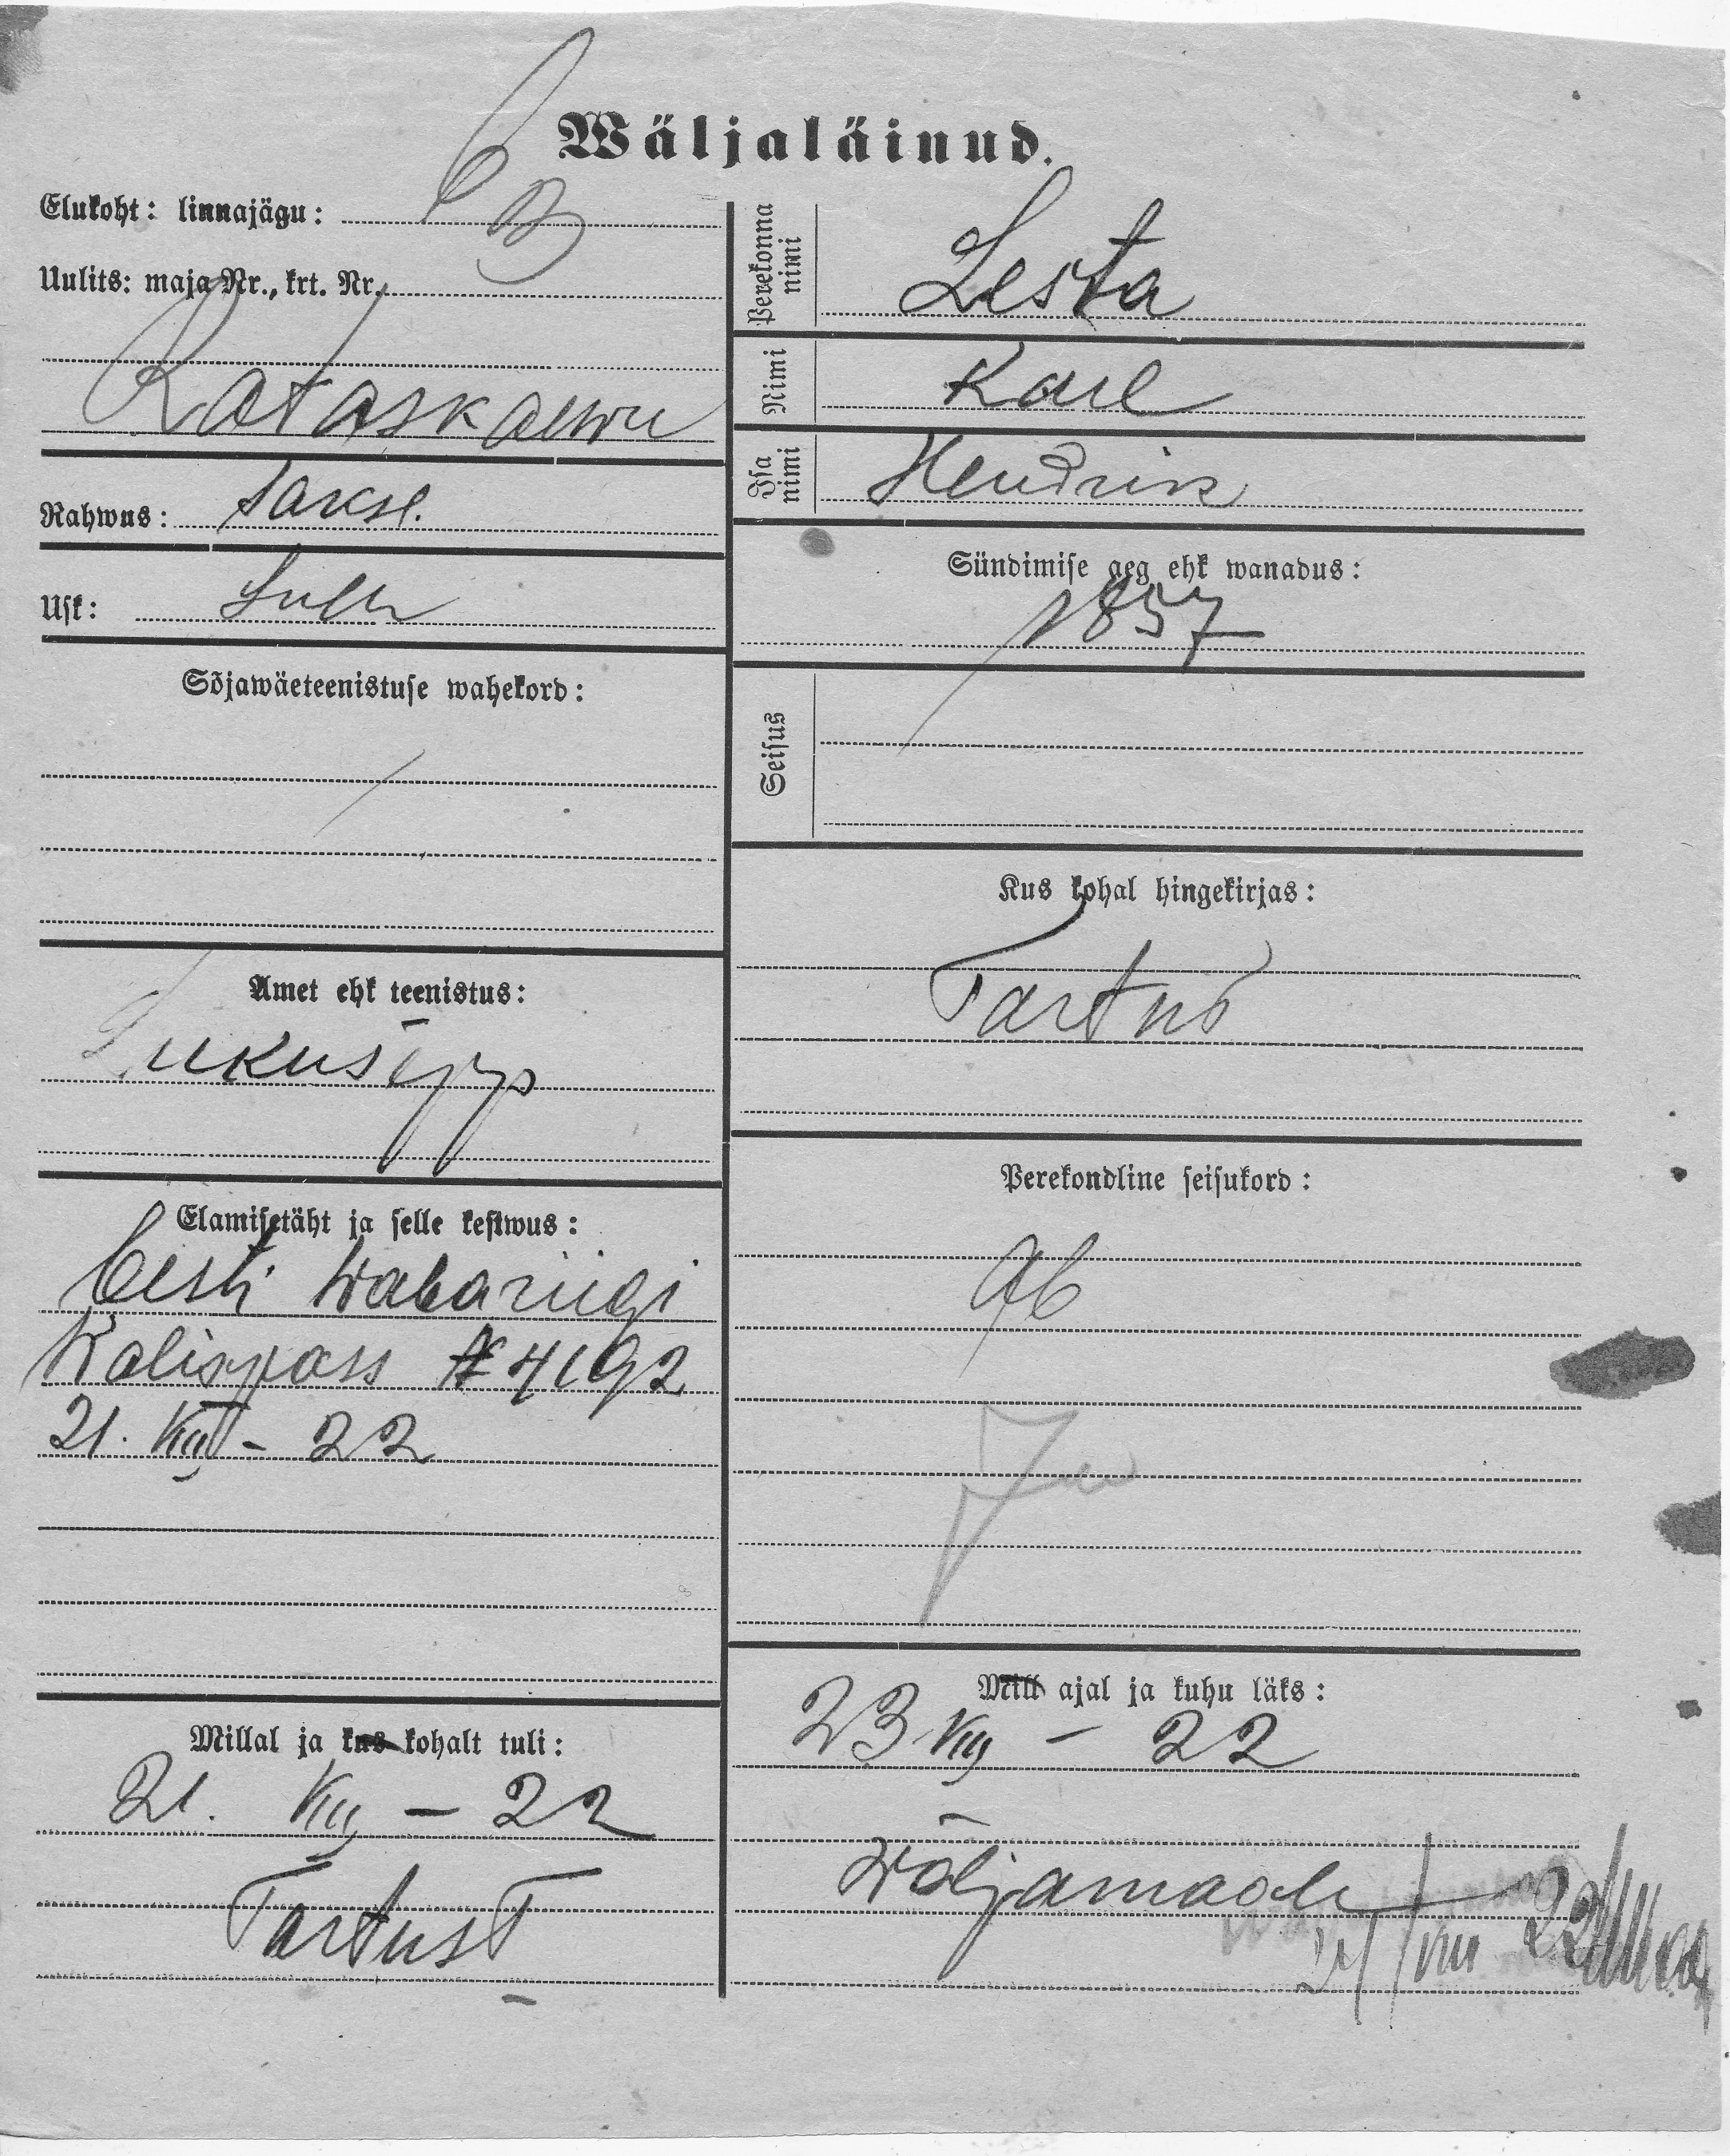 Wäljaläinud.
Elukoht: linnajägu:
Uulits: maja Nr., krt. Nr.
Rataskaewu
Rahwus: saksl.
Usk: Luth
Sõjawäeteenistuse wahekord:
Amet ehk teenistus:
Lukusepp
Elamisetäht ja selle kestwus:
Eesti Wabariigi
Walispass № 4192
21. VIII - 22
Millal ja kus kohalt tuli:
21. VIII – 22
Tartust
Perekonna nimi
Lesta
Nimi
Karl
Isa nimi
Hendrik
Sündimise aeg ehk wanadus:
1857
Seisus
Kus kohal hingekirjas:
Tartus
Perekondline seisukord:
Ab
Mill ajal ja kuhu läks:
23 VIII – 22
Wäljamaale
24/VIII 22